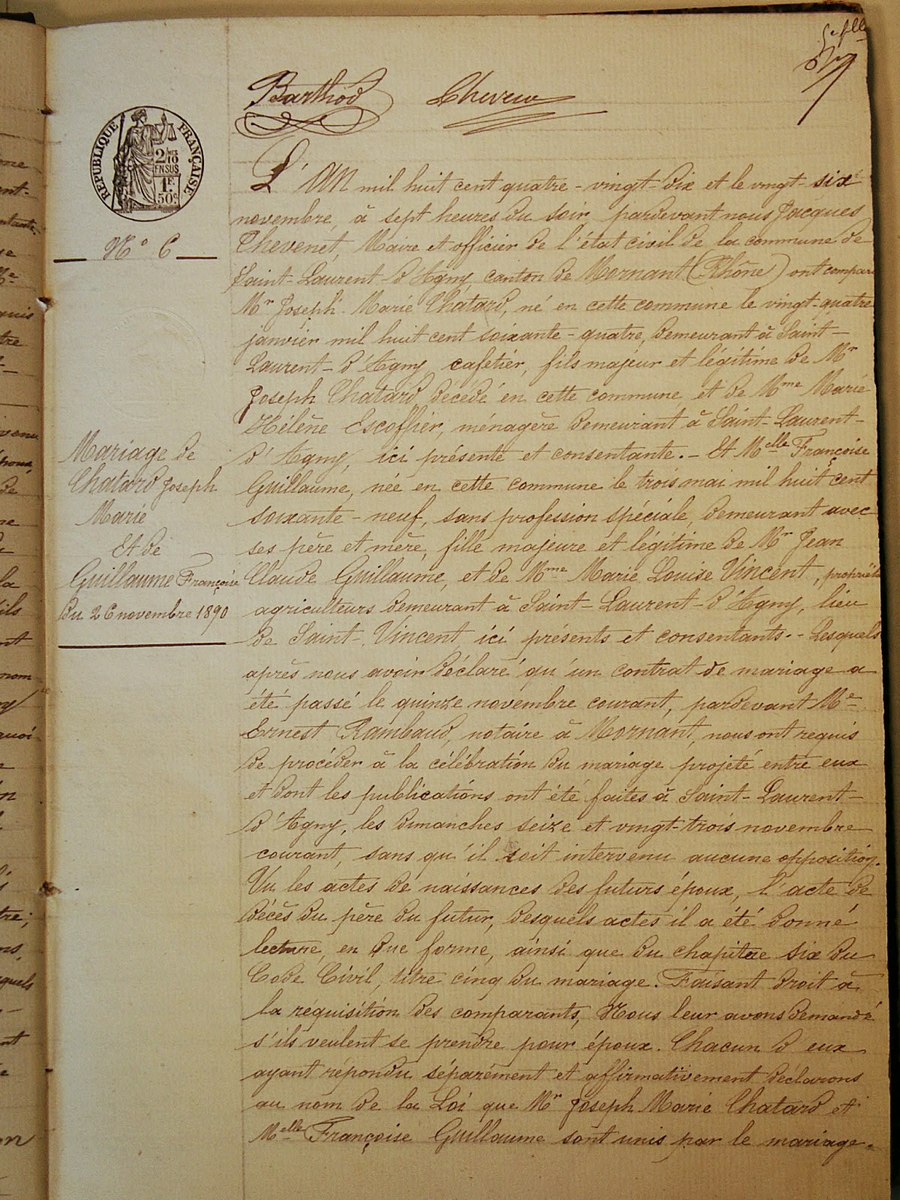 5e flle
Barthod Chevrin
RÉPUBLIQUE FRANÇAISE
2/10
EN SUS
1F
50c
N° 6
Mariage de
Chatard Joseph
Marie
Et de
Guillaume Françoise
du 26 novembre 1890
L'AN mil huit cent quatre-vingt-dix et le vingt-six
novembre, à sept heures du soir, pardevant nous Jacques
Thevenet, Maire et officier de l'état civil de la commune de
Saint-Laurent-d'Agny, canton de Mornant (Rhône) ont comparu
Mr Joseph-Marie Chatard, né en cette commune le vingt-quatre
janvier mil huit cent soixante-quatre, demeurant à Saint-
Laurent-d'Agny, cafetier, fils majeur et légitime de Mr
Joseph Chatard, décédé en cette commune, et de Mme Marie
Hélène Escoffier, ménagère demeurant à Saint-Laurent-
d'Agny, ici présente et consentante. - Et Melle Françoise
Guillaume, née en cette commune le trois mai mil huit cent
soixante-neuf, sans profession spéciale, demeurant avec
ses père et mère, fille majeure et légitime de Mr Jean
Claude Guillaume, et de Mme Marie Louise Vincent, propriét
agriculteurs demeurant à Saint-Laurent-d'Agny, lieu
de Saint-Vincent ici présents et consentants. - Lesquels
après nous avoir déclaré qu'un contrat de mariage a
été passé le quinze novembre courant, pardevant Me
Ernest Rambaud, notaire à Mornant, nous ont requis
de procéder à la célébration du mariage projeté entre eux
et dont les publications ont été faites à Saint-Laurent-
d'Agny, les dimanches seize et vingt-trois novembre
courant, sans qu'il soit intervenu aucune opposition.
Vu les actes de naissances des futurs époux, l'acte de
décès du père du futur, desquels actes il a été donné
lecture en due forme, ainsi que du chapitre six du
Code Civil, titre cinq du mariage. Faisant droit à
la réquisition des comparants, Nous leur avons demandé
s'ils veulent se prendre pour époux. Chacun d'eux
ayant répondu séparément et affirmativement déclarons
au nom de la Loi que Mr Joseph Marie Chatard et
Melle Françoise Guillaume sont unis par le mariage.